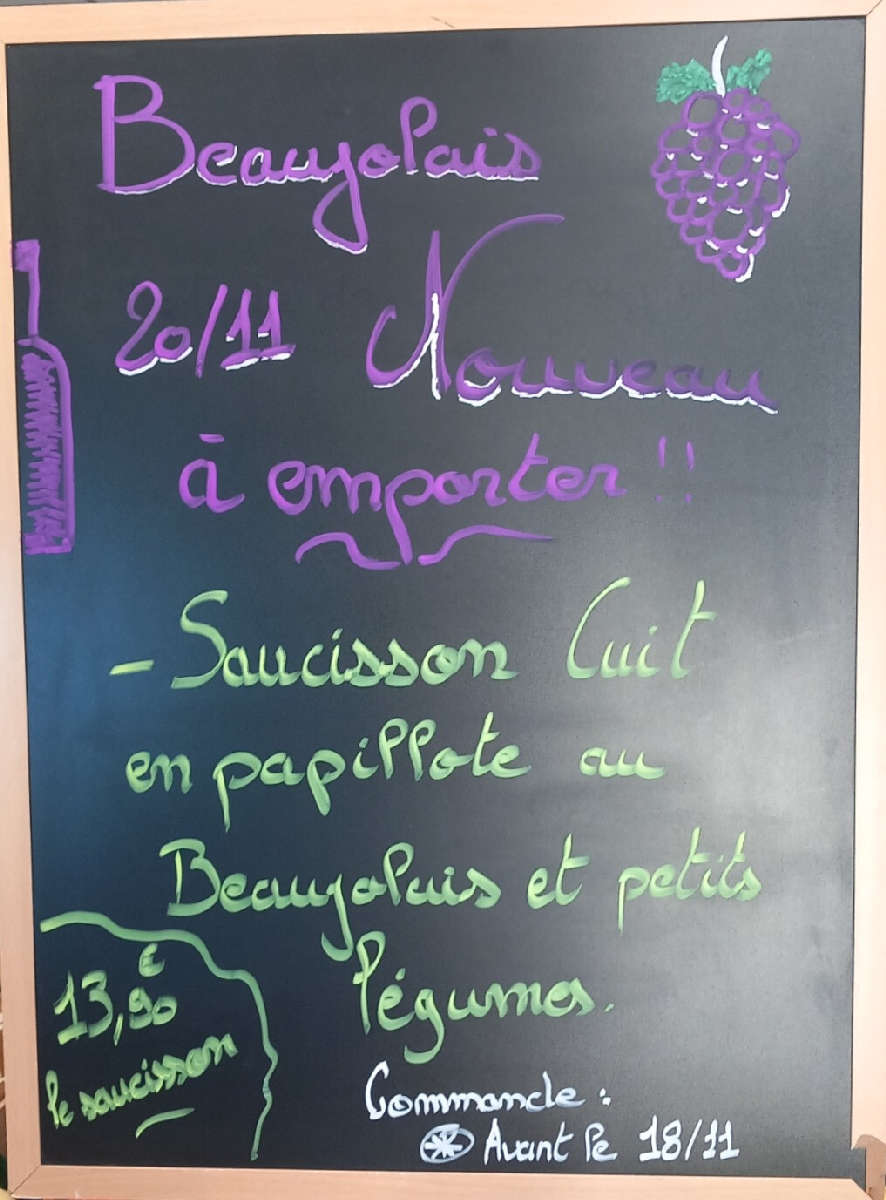 Beaujolais
20/11 Nouveau
à emporter !!
- Saucisson Cuit
en papillote au
Beaujolais et petits
légumes.
13,90 €
le saucisson
Commande :
Avant le 18/11